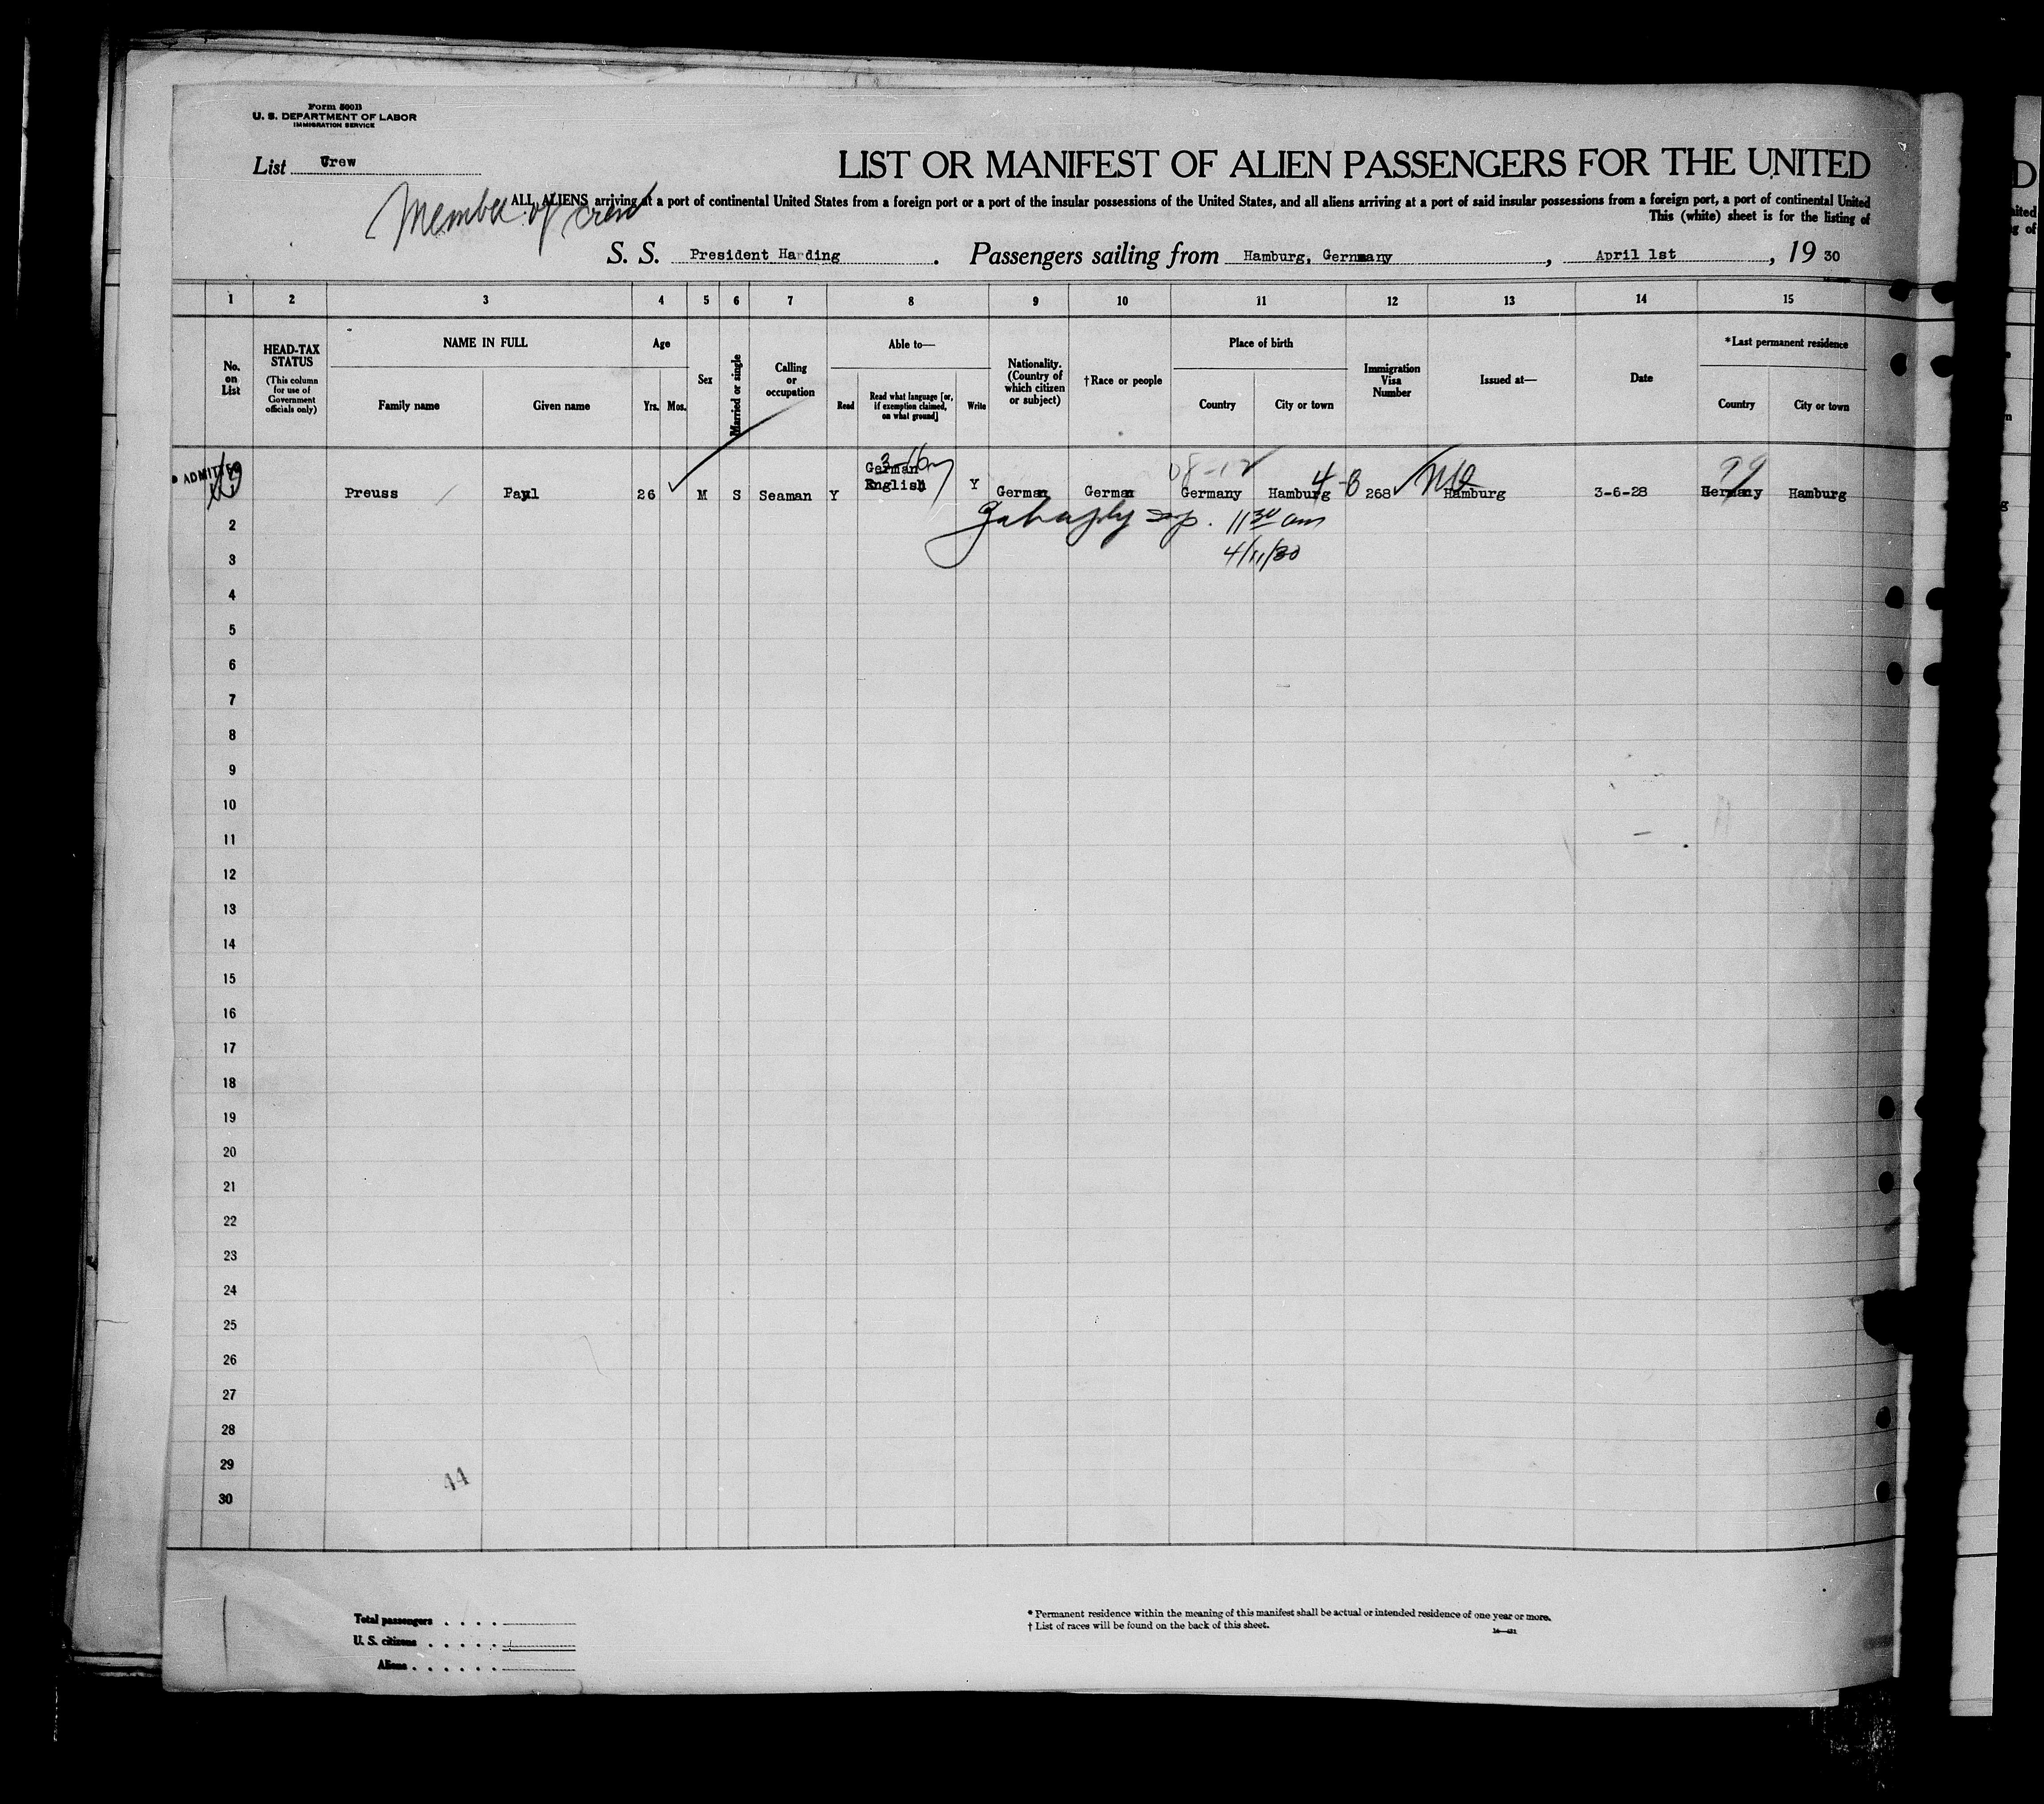 Form 500B
U. S. DEPARTMENT OF LABOR
IMMIGRATION SERVICE
List Crew
LIST OR MANIFEST OF ALIEN PASSENGERS FOR THE UNITED
Member of crew
ALL ALIENS arriving at a port of continental United States from a foreign port or a port of the insular possessions of the United States, and all aliens arriving at a port of said insular possessions from a foreign port, a port of continental United
This (white) sheet is for the listing of
S. S. President Harding . Passengers sailing from Hamburg, Gernmany , April 1st , 19 30
1 2 3 4 5 6 7 8 9 10 11 12 13 14 15
No. on List
HEAD-TAX STATUS
(This column for use of Government officials only)
NAME IN FULL
Family name
Given name
Age
Yrs. Mos.
Sex
Married or single
Calling or occupation
Able to—
Read
Read what language [or, if exemption claimed, on what ground]
Write
Nationality. (Country of which citizen or subject)
†Race or people
Place of birth
Country
City or town
Immigration Visa Number
Issued at—
Date
*Last permanent residence
Country
City or town
ADMITTED
3-16
08-12
4-B
99
German
English
Preuss Paul 26 M S Seaman Y Y German German Germany Hamburg 268 Hamburg 3-6-28 Germany Hamburg
11 30 am
4/11/30
2
3
4
5
6
7
8
9
10
11
12
13
14
15
16
17
18
19
20
21
22
23
24
25
26
27
28
29
30
44
Total passengers
U. S. citizens
Aliens
* Permanent residence within the meaning of this manifest shall be actual or intended residence of one year or more.
† List of races will be found on the back of this sheet.